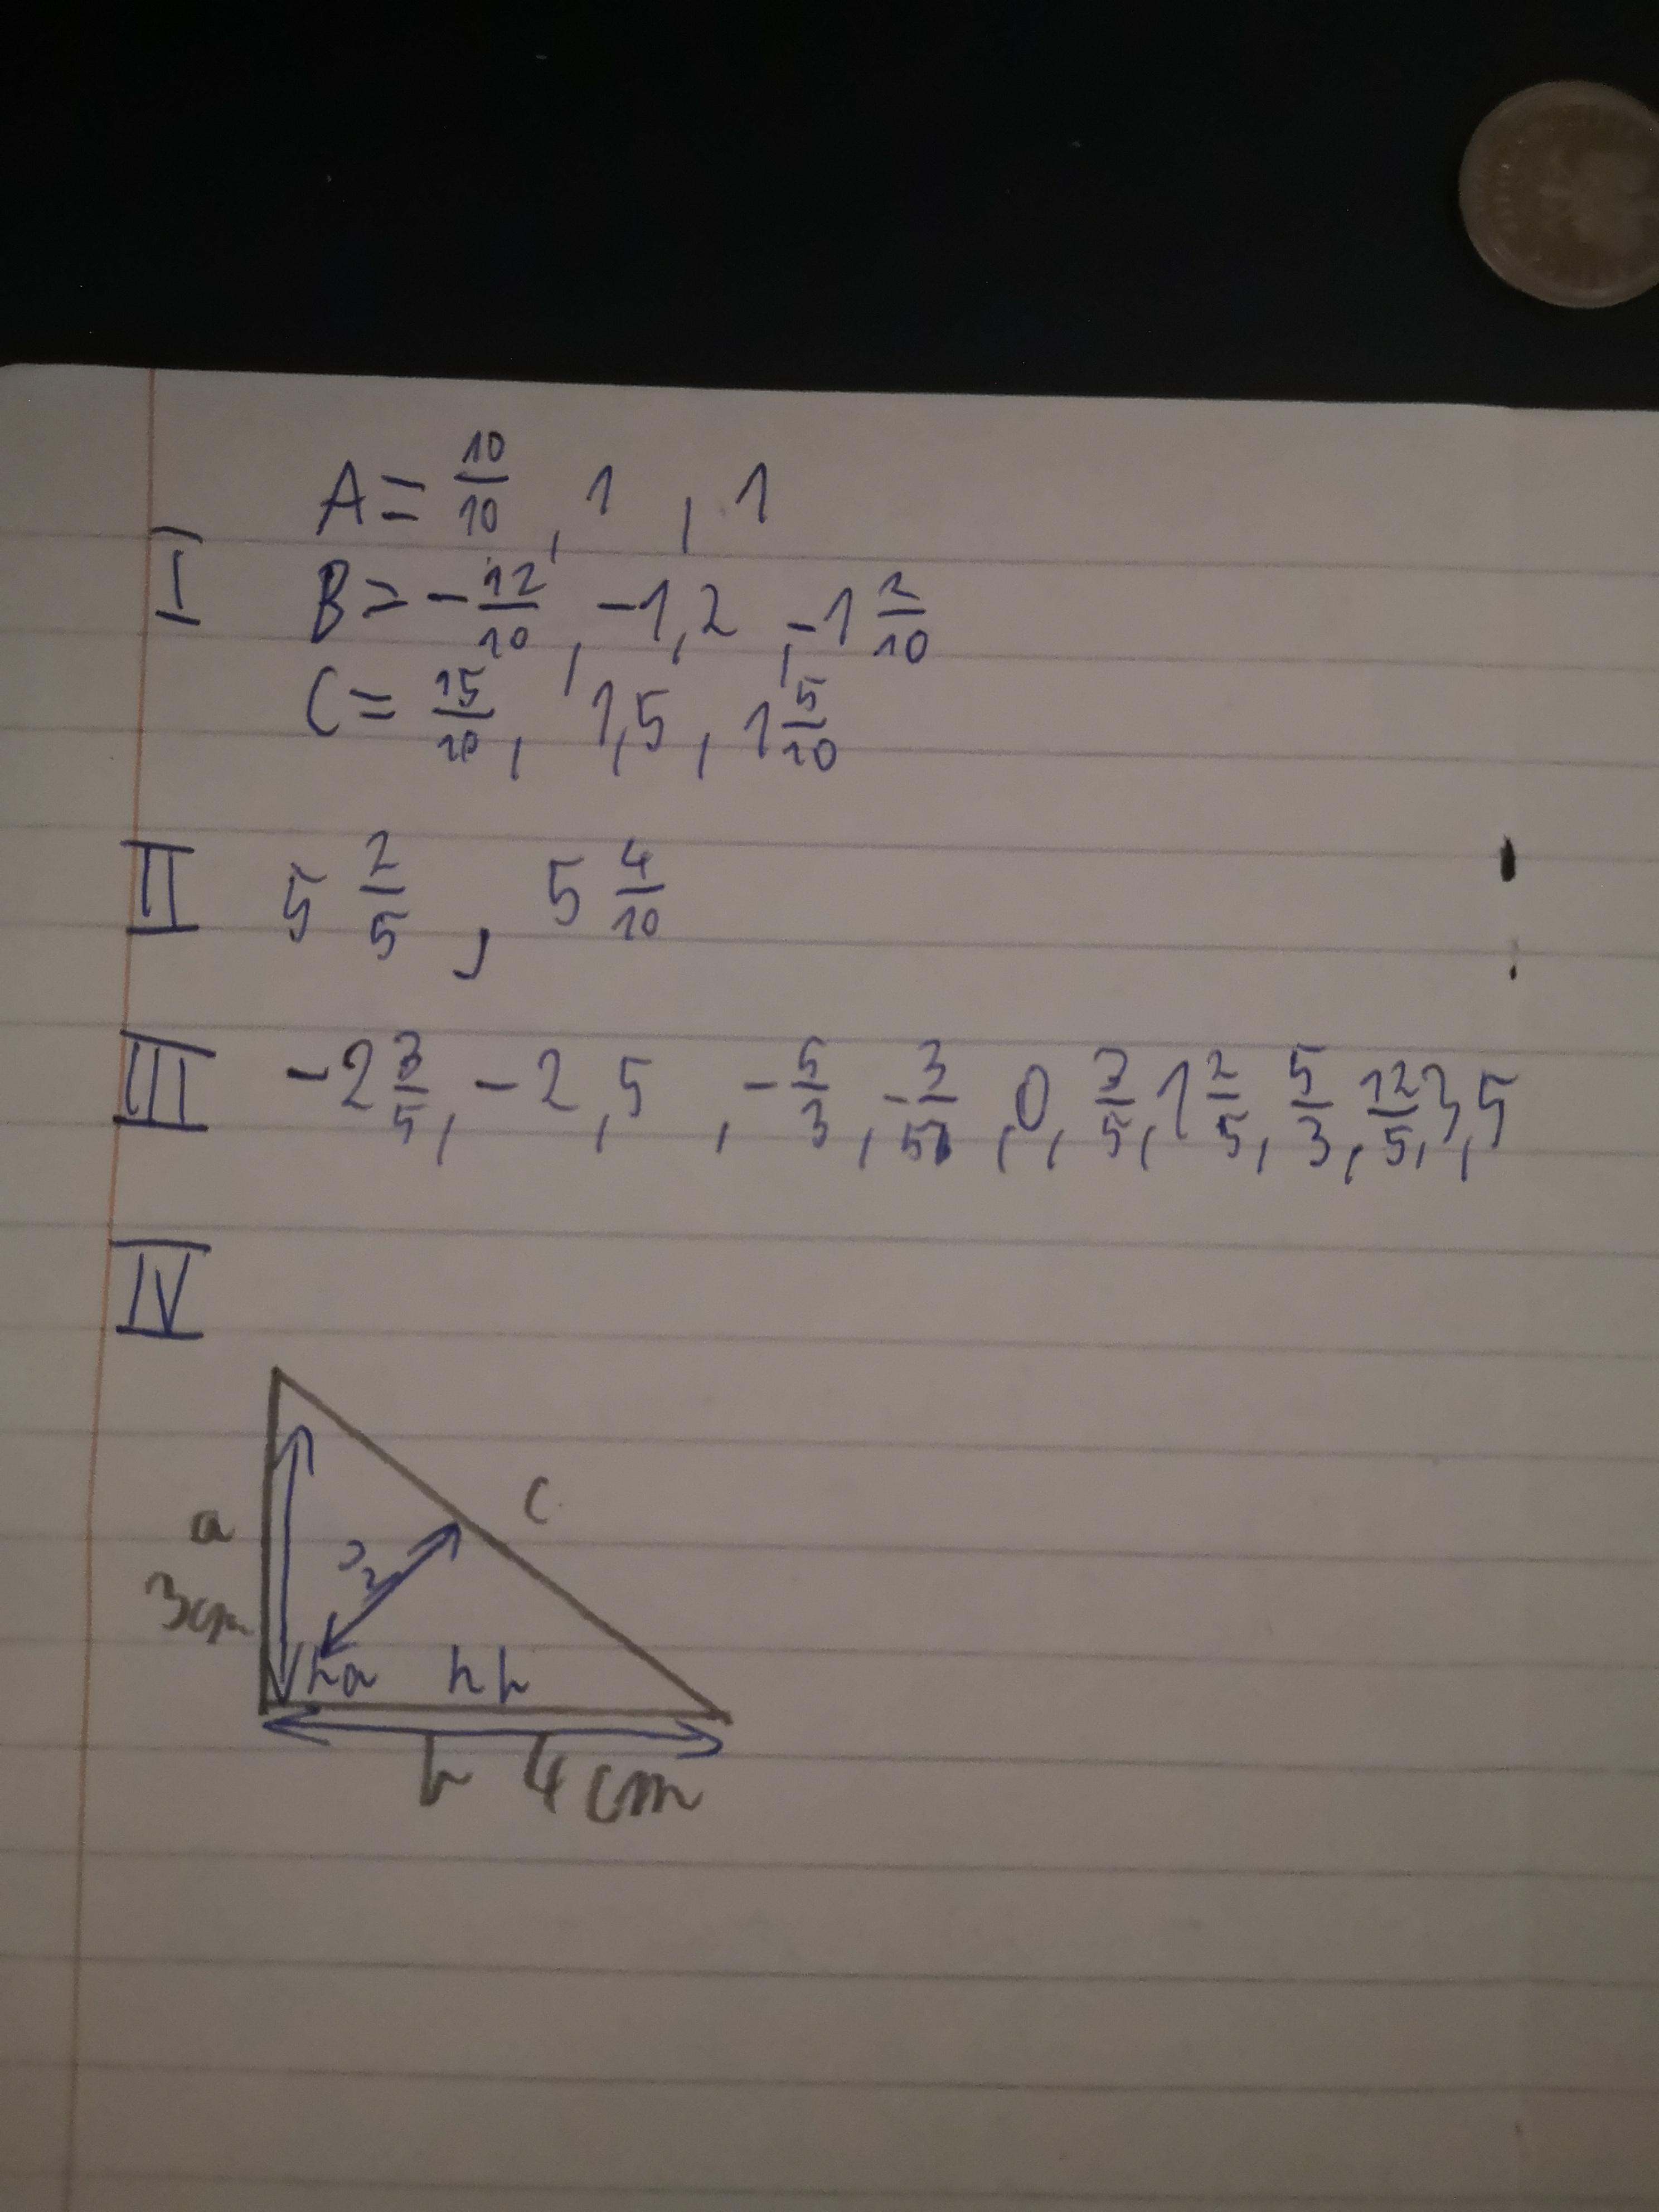 I
A = 10/10, 1, 1
B = -12/10, -1,2, -1 2/10
C = 15/10, 1,5, 1 5/10
II 5 2/5, 5 4/10
III -2 3/5, -2,5, -5/3, -3/5, 0, 3/5, 1 2/5, 5/3, 12/5, 3,5
IV
c
a
3cm
ha hb
b 4cm